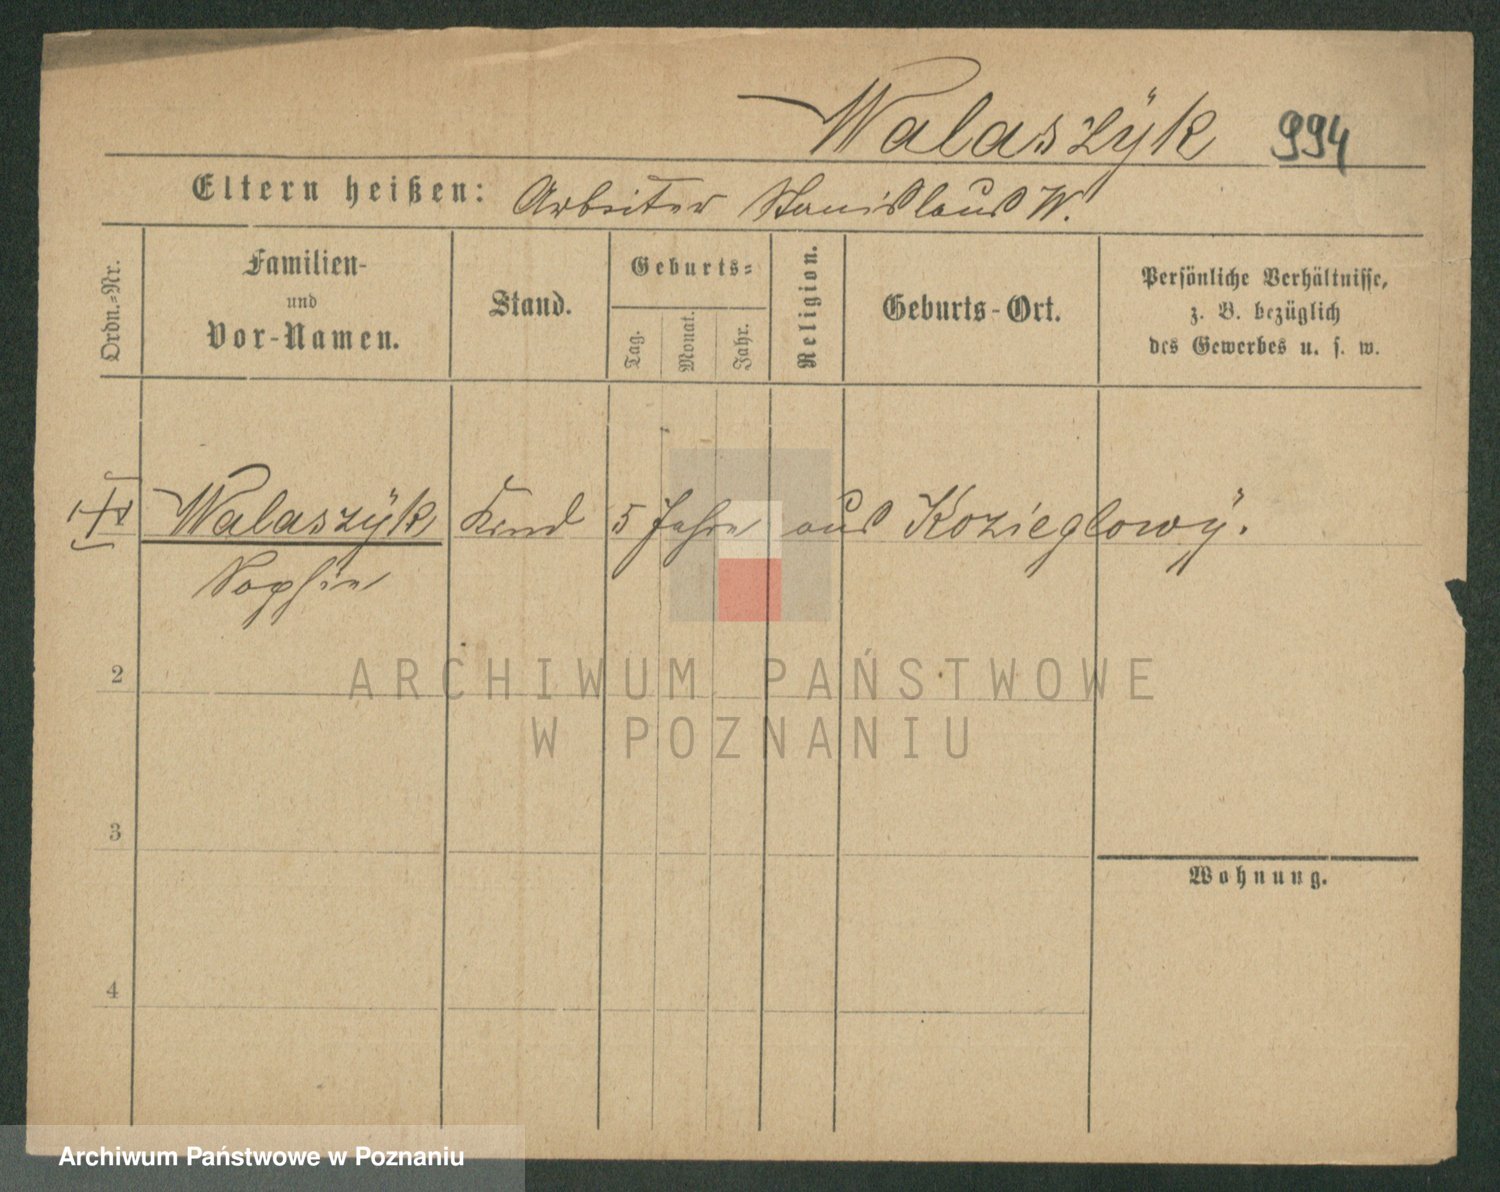 Walaszÿk 994
Eltern heißen: Arbeiter Stanislaus W.
Ordn.=Nr.
Familien-
und
Vor-Namen.
Stand.
Geburts=
Tag.
Monat.
Jahr.
Religion.
Geburts-Ort.
Persönliche Verhältnisse,
z. B. bezüglich
des Gewerbes u. s. w.
Walaszÿk Kind 5 Jahre aus Kozieglowÿ.
Sophie
2
3
4
Wohnung.
ARCHIWUM PAŃSTWOWE
W POZNANIU
Archiwum Państwowe w Poznaniu